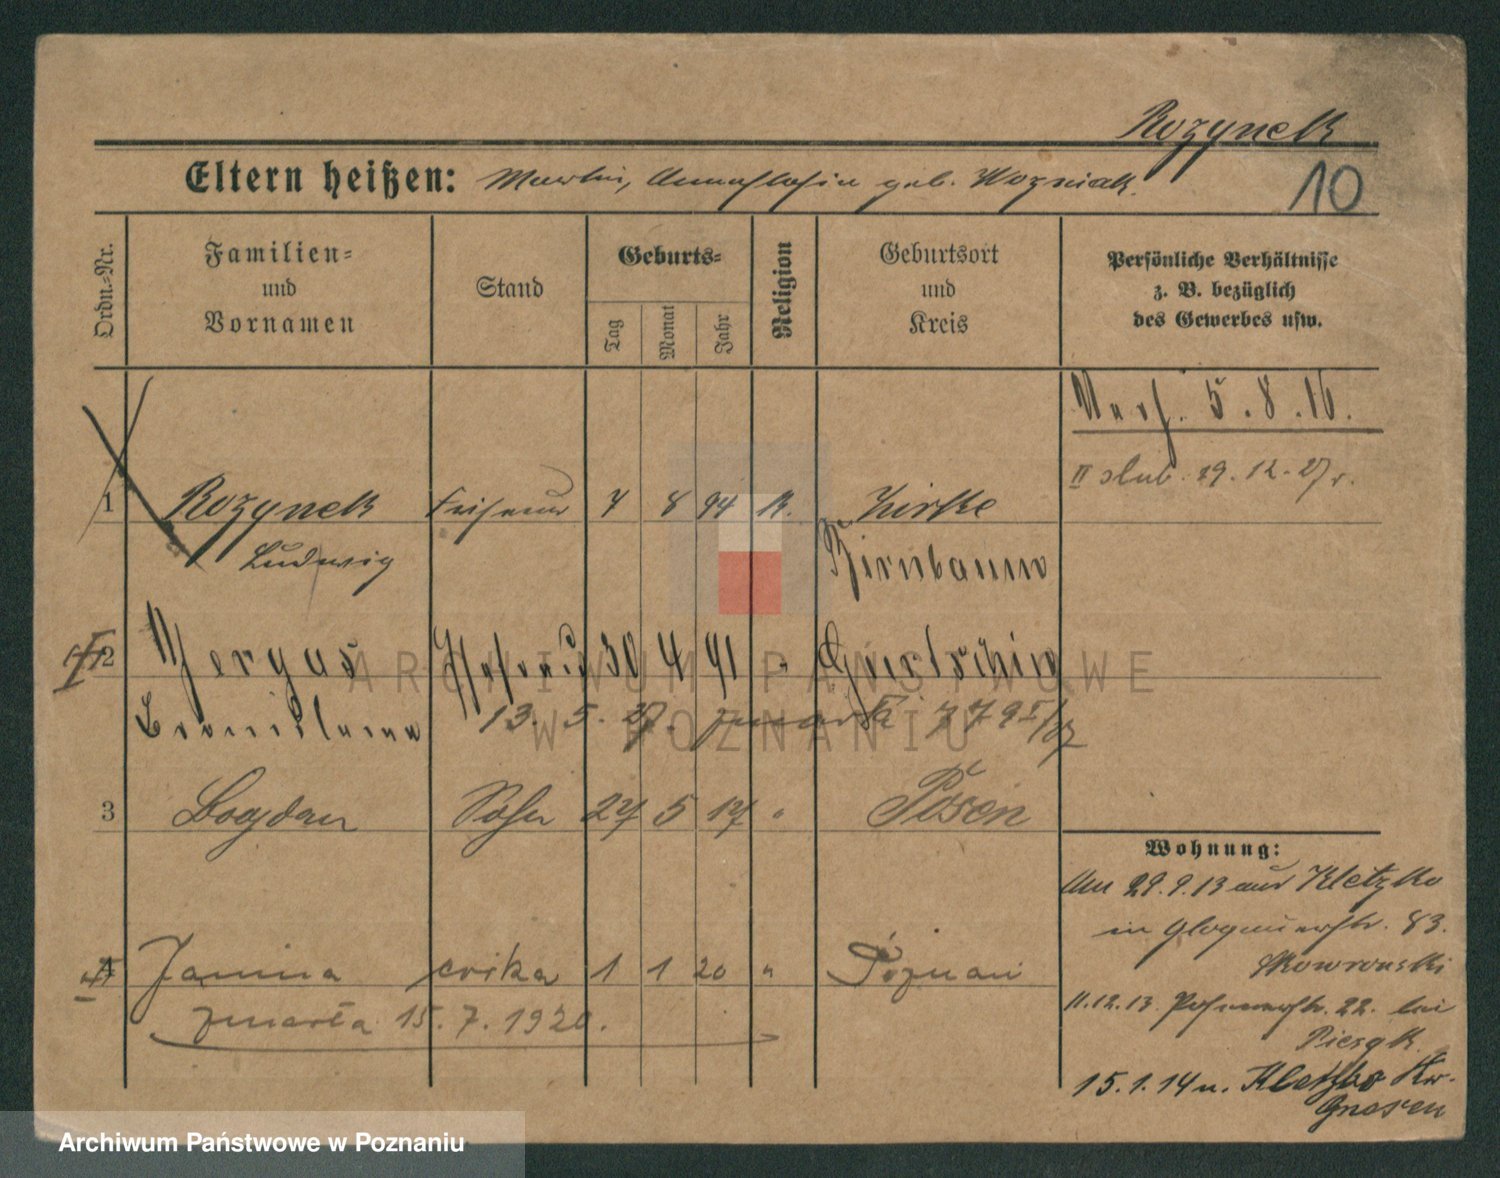 Rozynek
10
Eltern heißen: Martin, Annastasia geb. Wozniak.
Ordn.-Nr.
Familien-
und
Vornamen
Stand
Geburts-
Tag
Monat
Jahr
Religion
Geburtsort
und
Kreis
Persönliche Verhältnisse
z. B. bezüglich
des Gewerbes usw.
5.8.16.
II slub. 29.12.27 r.
1 Rozynek Friseur 7 8 94 K. Zirke
Ludwig Birnbaum
2 Yergas 30 4 91 "
Bronislawa
13. 5. 27. zmarła 779 I/27
3 Bogdan Sohn 27 5 17 " Posen
4 Janina córka 1 1 20 " Poznań
zmarła 15.7.1920.
Wohnung:
Am 29.9.13 aus Kletzko
in Glogauerstr. 83.
Skowronski
11.12.13. Posenerstr. 22. bei
15.1.14 n. Kletzko Kr.
Gnesen
ARCHIWUM PAŃSTWOWE
W POZNANIU
Archiwum Państwowe w Poznaniu